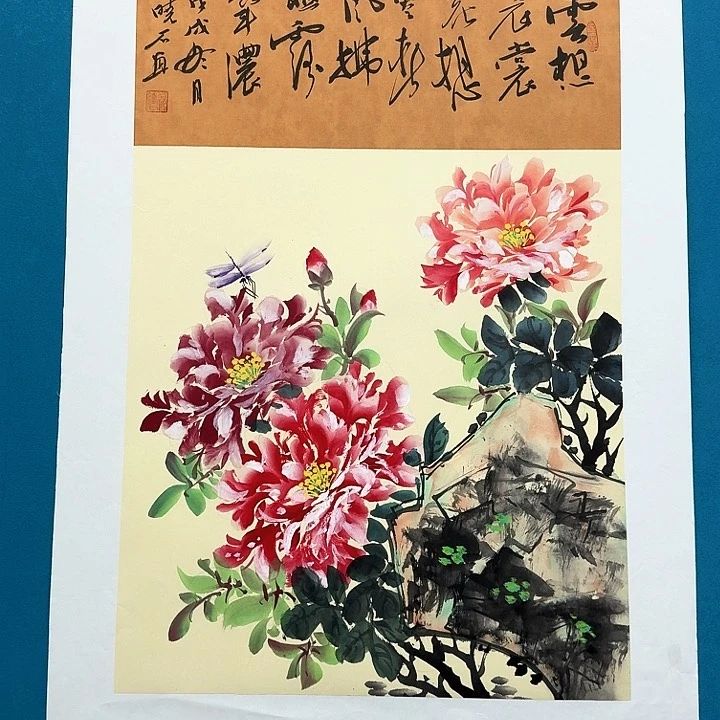 雲想
衣裳
花想
容春
風拂
檻露
華濃
戊戌月
晓石